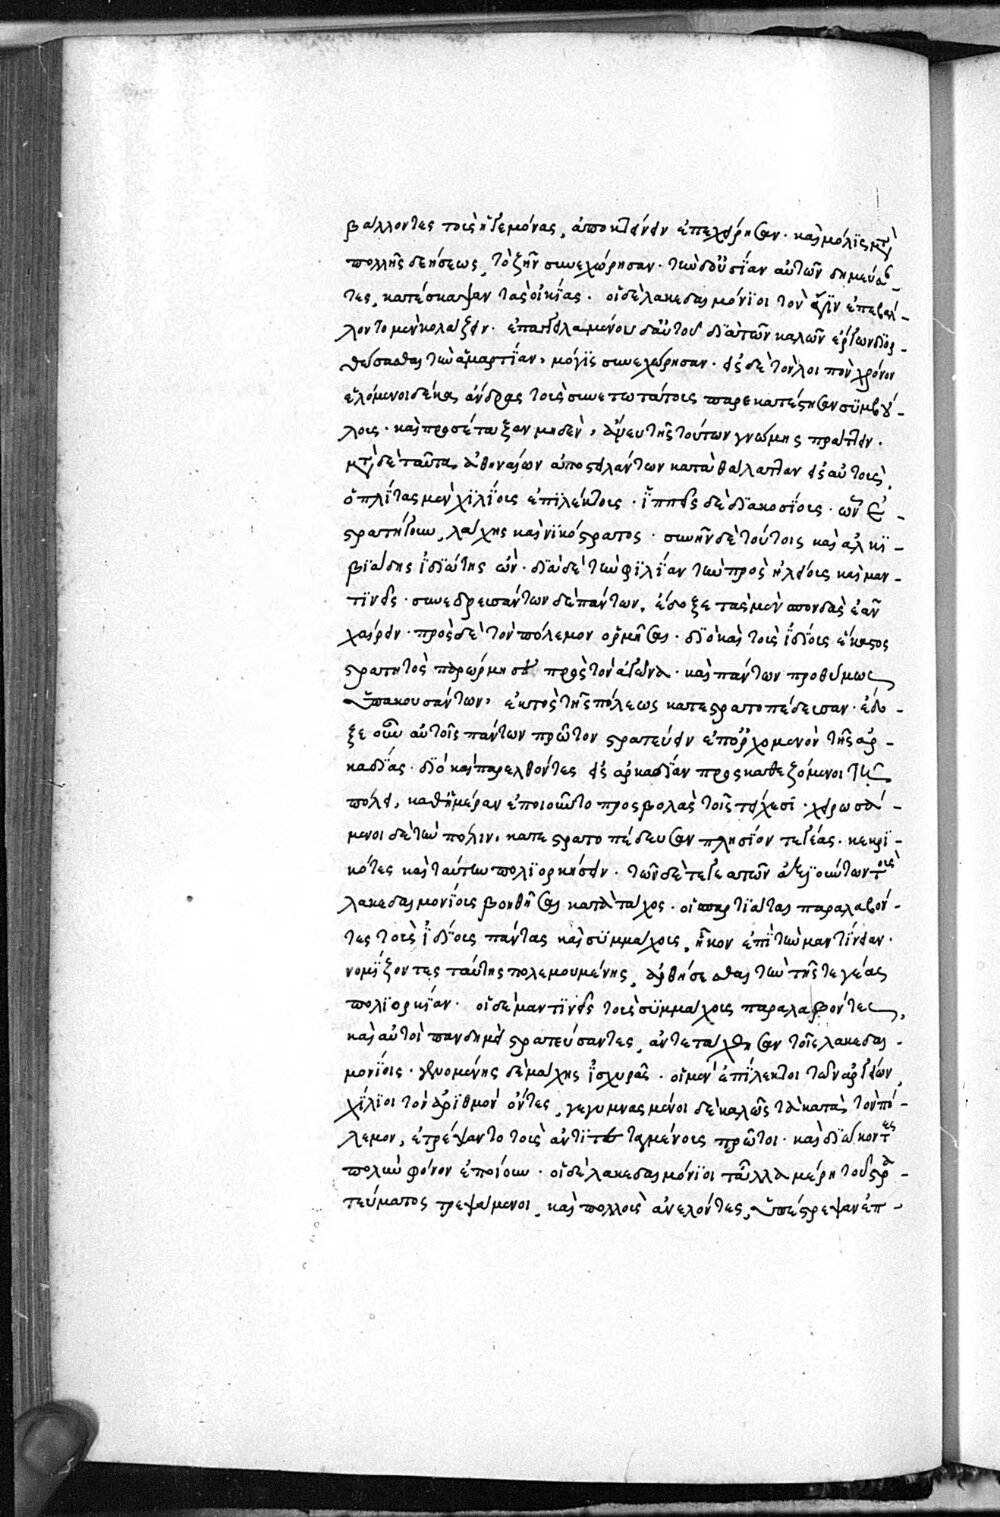 βάλλοντες τοὺς ἡγεμόνας, ἀποκτείνειν ἐπεχείρησαν· καὶ μόλις μετὰ
πολλῆς δεήσεως, τὸ ζῆν συνεχώρησαν· τὴν δ' οὐσίαν αὐτῶν δημεύσαν-
τες, κατέσκαψαν τὰς οἰκίας. οἱ δὲ λακεδαιμόνιοι τὸν ἄγιν ἐπεβάλ-
λοντο μὲν κολάζειν· ἐπαγγειλαμένου δ' αὐτοῦ διὰ τῶν καλῶν ἔργων διορ-
θώσασθαι τὴν ἁμαρτίαν, μόγις συνεχώρησαν· εἰς δὲ τὸν λοιπὸν χρόνον
ἑλόμενοι δέκα ἄνδρας τοὺς συνετωτάτους παρεκατέστησαν συμβού-
λους· καὶ προσέταξαν μηδὲν, ἄνευ τῆς τούτων γνώμης πράττειν·
μετὰ δὲ ταῦτα, ἀθηναίων ἀποστειλάντων κατὰ θάλατταν εἰς αὐτοὺς,
ὁπλίτας μὲν χιλίους ἐπιλέκτους· ἱππεῖς δὲ διακοσίους· ὧν ἐ-
στρατήγουν, λάχης καὶ νικόστρατος· συνῆν δὲ τούτοις καὶ ἀλκι-
βιάδης ἰδιώτης ὤν· διὰ δὲ τὴν φιλίαν τὴν πρὸς ἠλείους καὶ μαν-
τινεῖς· συνεδρευσάντων δὲ πάντων, ἔδοξε τὰς μὲν σπονδὰς ἐᾶν
χαίρειν· πρὸς δὲ τὸν πόλεμον ὁρμῆσαι· διὸ καὶ τοὺς ἰδίους ἕκαστος
στρατηγὸς παρώρμησε πρὸς τὸν ἀγῶνα· καὶ πάντων προθύμως
ὑπακουσάντων, ἐκτὸς τῆς πόλεως κατεστρατοπέδευσαν· ἔδο-
ξε οὖν αὐτοῖς πάντων πρῶτον στρατεύειν ἐπ' ὀρχομενὸν τῆς ἀρ-
καδίας· διὸ καὶ παρελθόντες εἰς ἀρκαδίαν προσκαθεζόμενοι τῇ
πόλει, καθ' ἡμέραν ἐποιοῦντο προσβολὰς τοῖς τείχεσι· χειρωσά-
μενοι δὲ τὴν πόλιν, κατεστρατοπέδευσαν πλησίον τεγέας· κεκρι-
κότες καὶ ταύτην πολιορκήσειν· τῶν δὲ τεγεατῶν ἀξιούντων τοὺς
λακεδαιμονίους βοηθῆσαι κατὰ τάχος· οἱ σπαρτιᾶται παραλαβόν-
τες τοὺς ἰδίους πάντας καὶ συμμάχους, ἧκον ἐπὶ τὴν μαντίνειαν·
νομίζοντες ταύτης πολεμουμένης, ἀρθήσεσθαι τὴν τῆς τεγέας
πολιορκίαν· οἱ δὲ μαντινεῖς τοὺς συμμάχους παραλαβόντες,
καὶ αὐτοὶ πανδημεὶ στρατεύσαντες, ἀντετάχθησαν τοῖς λακεδαι-
μονίοις· γενομένης δὲ μάχης ἰσχυρᾶς· οἱ μὲν ἐπίλεκτοι τῶν ἀργείων,
χίλιοι τὸν ἀριθμὸν ὄντες, γεγυμνασμένοι δὲ καλῶς τὰ κατὰ τὸν πό-
λεμον, ἐτρέψαντο τοὺς ἀντιτεταγμένους πρῶτοι· καὶ διώκοντες
πολὺν φόνον ἐποίουν· οἱ δὲ λακεδαιμόνιοι τἆλλα μέρη τοῦ στρα-
τεύματος τρεψάμενοι, καὶ πολλοὺς ἀνελόντες, ὑπέστρεψαν ἐπ-